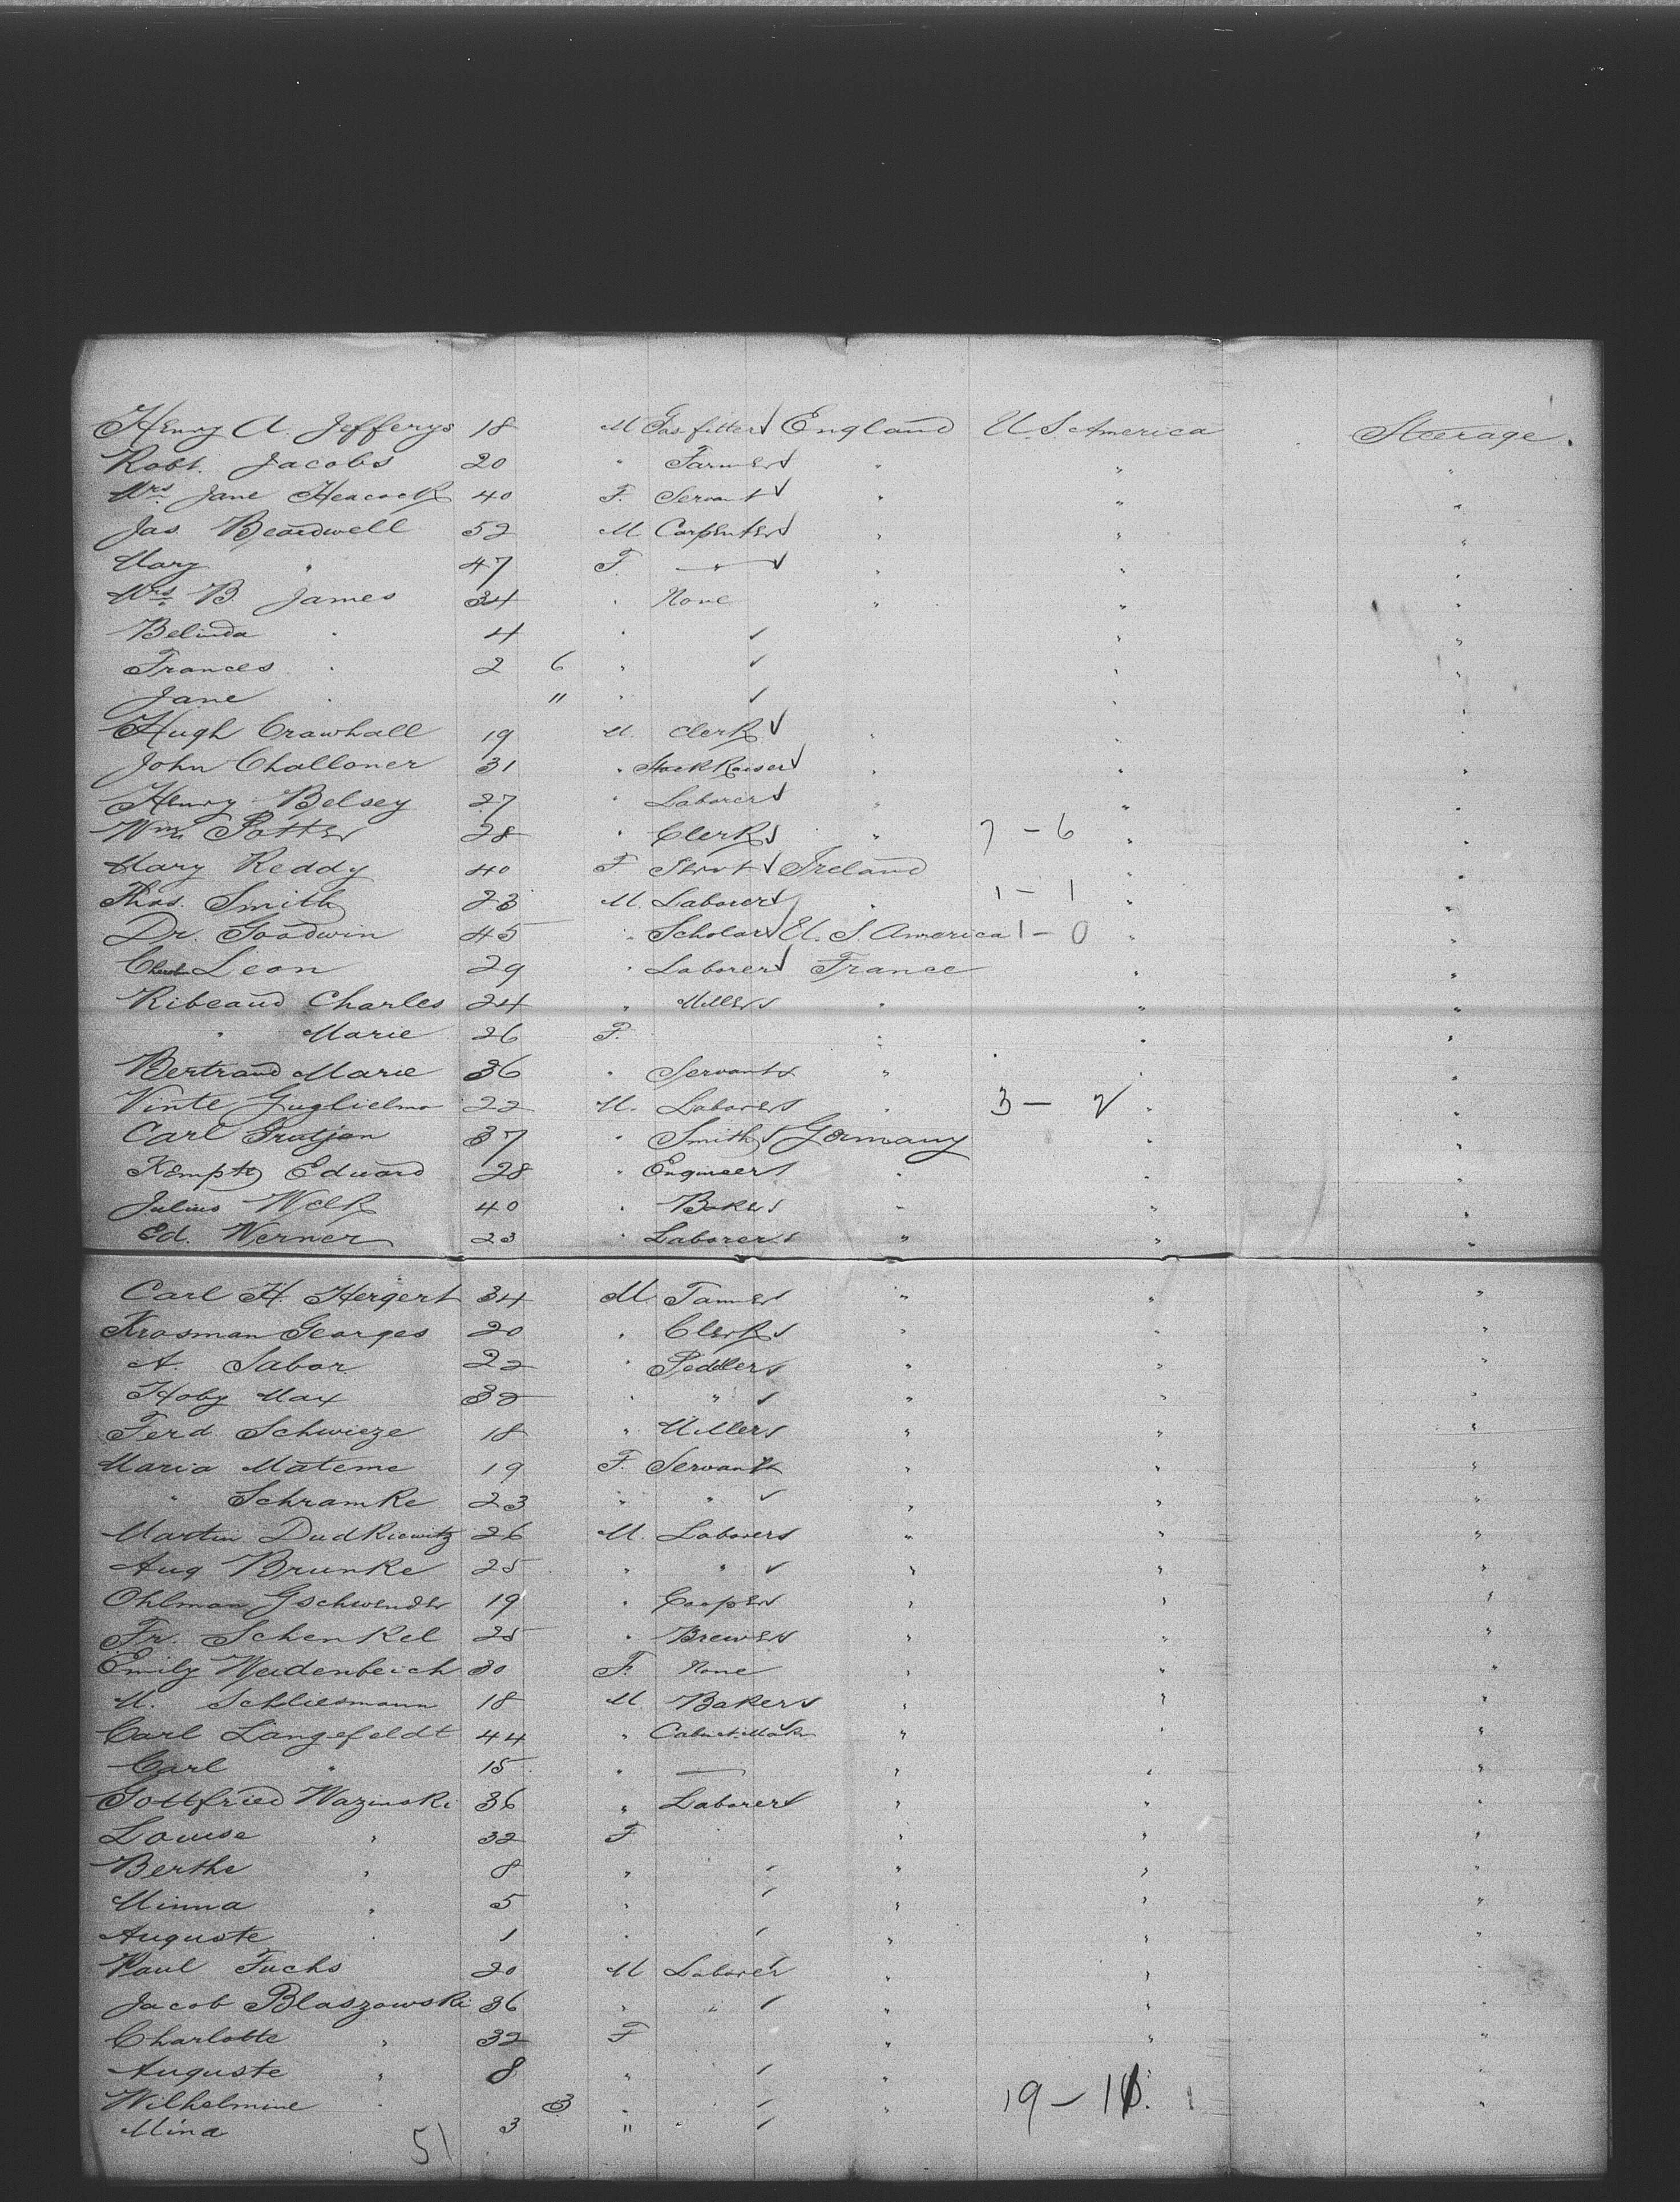 Henry A. Jefferys 18 M Gas fitter England U. S America Steerage.
Robt. Jacobs 20 " Farmer " " "
Mrs Jane Heacock 40 F. Servant " " "
Jas Beardwell 52 M Carpenter " " "
Mary " 47 F — " — " " "
Mrs B. James 34 " None " " "
Belinda " 4 " " "
Frances " 2 6 " " "
Jane " " " " "
Hugh Crawhall 19 M. Clerk " " "
John Challoner 31 " Stock Raiser " " "
Henry Belsey 27 " Laborer " " "
Wm Potter 28 " Clerk " 7 - 6 " "
Mary Reddy 40 F Servt Ireland " "
Thos. Smith 23 M. Laborer " 1 - 1 " "
Dr. Goodwin 45 " Scholar U. S. America 1 - 0 " "
Leon 29 " Laborer France " "
Ribeaud Charles 24 " Miller " " "
" Marie 26 F. " " "
Bertrand Marie 36 " Servant " " "
Vinte Guglielmo 22 M. Laborer " 3 - 2 " "
Carl Grutjan 37 " Smith Germany " "
Kempte Edward 28 " Engineer " " "
Julius Welk 40 " Baker " " "
Ed. Werner 23 " Laborer " " "
Carl H. Hergert 34 M Tanner " " "
Krosman Georges 20 " Clerk " " "
A. Sabor 22 " Peddler " " "
Hoby Max 32 " " " " "
Ferd. Schwieze 18 " Miller " " "
Maria Materne 19 F. Servant " " "
" Schramke 23 " " " " "
Martin Dudkiewitz 26 M. Laborer " " "
Aug Brunke 25 " " " " "
Ohlman Gschwender 19 " Cooper " " "
Fr. Schenkel 25 " Brewer " " "
Emily Weidenbeich 30 F. None " " "
M. Schliesmann 18 M Baker " " "
Carl Langefeldt 44 " Cabinet Maker " " "
Carl " 15 " — " " "
Gottfried Wazinski 36 " Laborer " " "
Louise " 32 F " " "
Berthe " 8 " " " "
Minna " 5 " " " "
Auguste " 1 " " " "
Paul Fuchs 20 M Laborer " " "
Jacob Blaszowski 36 " " " " "
Charlotte " 32 F " " "
Auguste " 8 " " "
Wilhelmine " 3 " " 19 - "
Mina 3 "
51